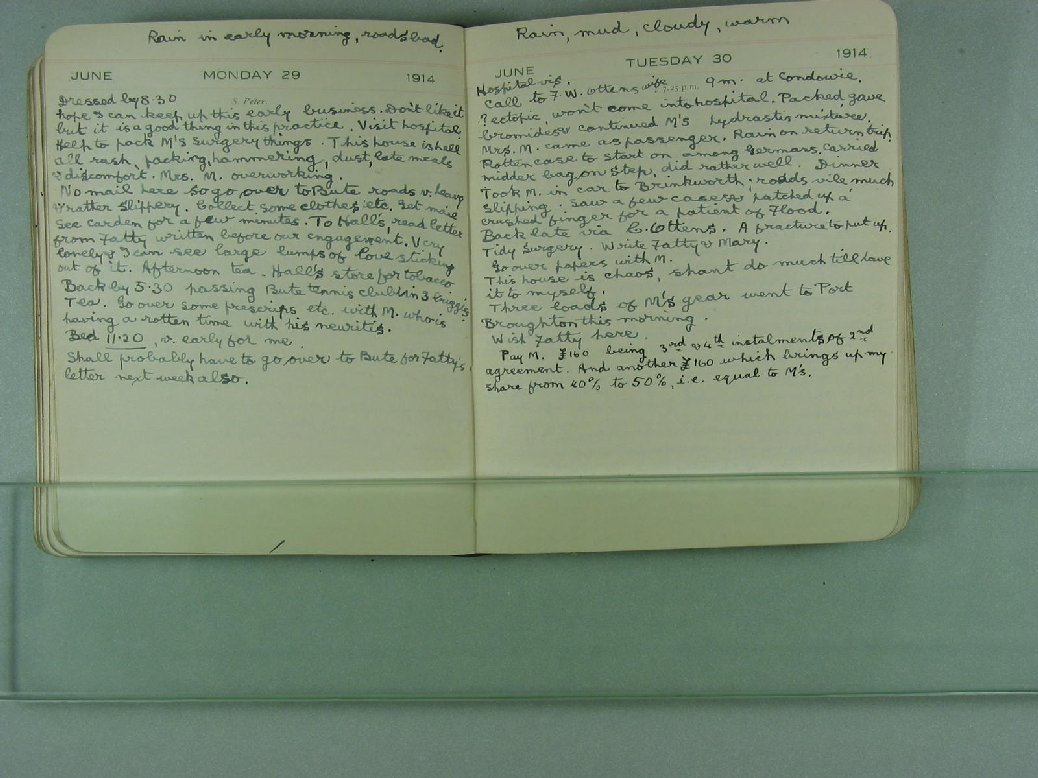 Rain in early morning, roads bad.
JUNE MONDAY 29 1914
S. Peter.
Dressed by 8.30
hope I can keep up this early business. Don't like it
but it is a good thing in this practice. Visit hospital
Help to pack M's surgery things. This house is hell
all rash, packing, hammering, dust, late meals
& discomfort. Mrs. M. overworking.
No mail here so go over to Bute roads v. heavy
& rather slippery. Collect some clothes etc. Get mail
See Carden for a few minutes. To Hall's, read letter
from Fatty written before our engagement. Very
lonely & I can see large lumps of love sticking
out of it. Afternoon tea. Hall's store for tobacco
Back by 5.30 passing Bute tennis club in 3 buggys.
Tea. Go over some prescrips etc. with M. who is
having a rotten time with his neuritis.
Bed 11.20, v. early for me.
Shall probably have to go over to Bute for Fatty's
letter next week also.
Rain, mud, cloudy, warm
JUNE TUESDAY 30 1914
Hospital vis.
Call to F. W. Ottens wife 9 m. at Condowie.
? ectopic, won't come into hospital. Packed gave
bromides & continued M's hydrastis mixture.
Mrs. M. came as passenger. Rain on return trip.
Rotten case to start on among Germans. Carried
midder bag on step, did rather well. Dinner
Took M. in car to Brinkworth; roads vile much
slipping. Saw a few cases & patched up a
crushed finger for a patient of Flood.
Back late via C. Ottens. A fracture to put up.
Tidy surgery. Write Fatty & Mary.
Go over papers with M.
This house is chaos, shant do much till I have
it to myself.
Three loads of M's gear went to Port
Broughton this morning.
Wish Fatty here.
Pay M. £160 being 3rd & 4th instalments of 2nd
agreement. And another £160 which brings up my
share from 40% to 50%, i.e. equal to M's.